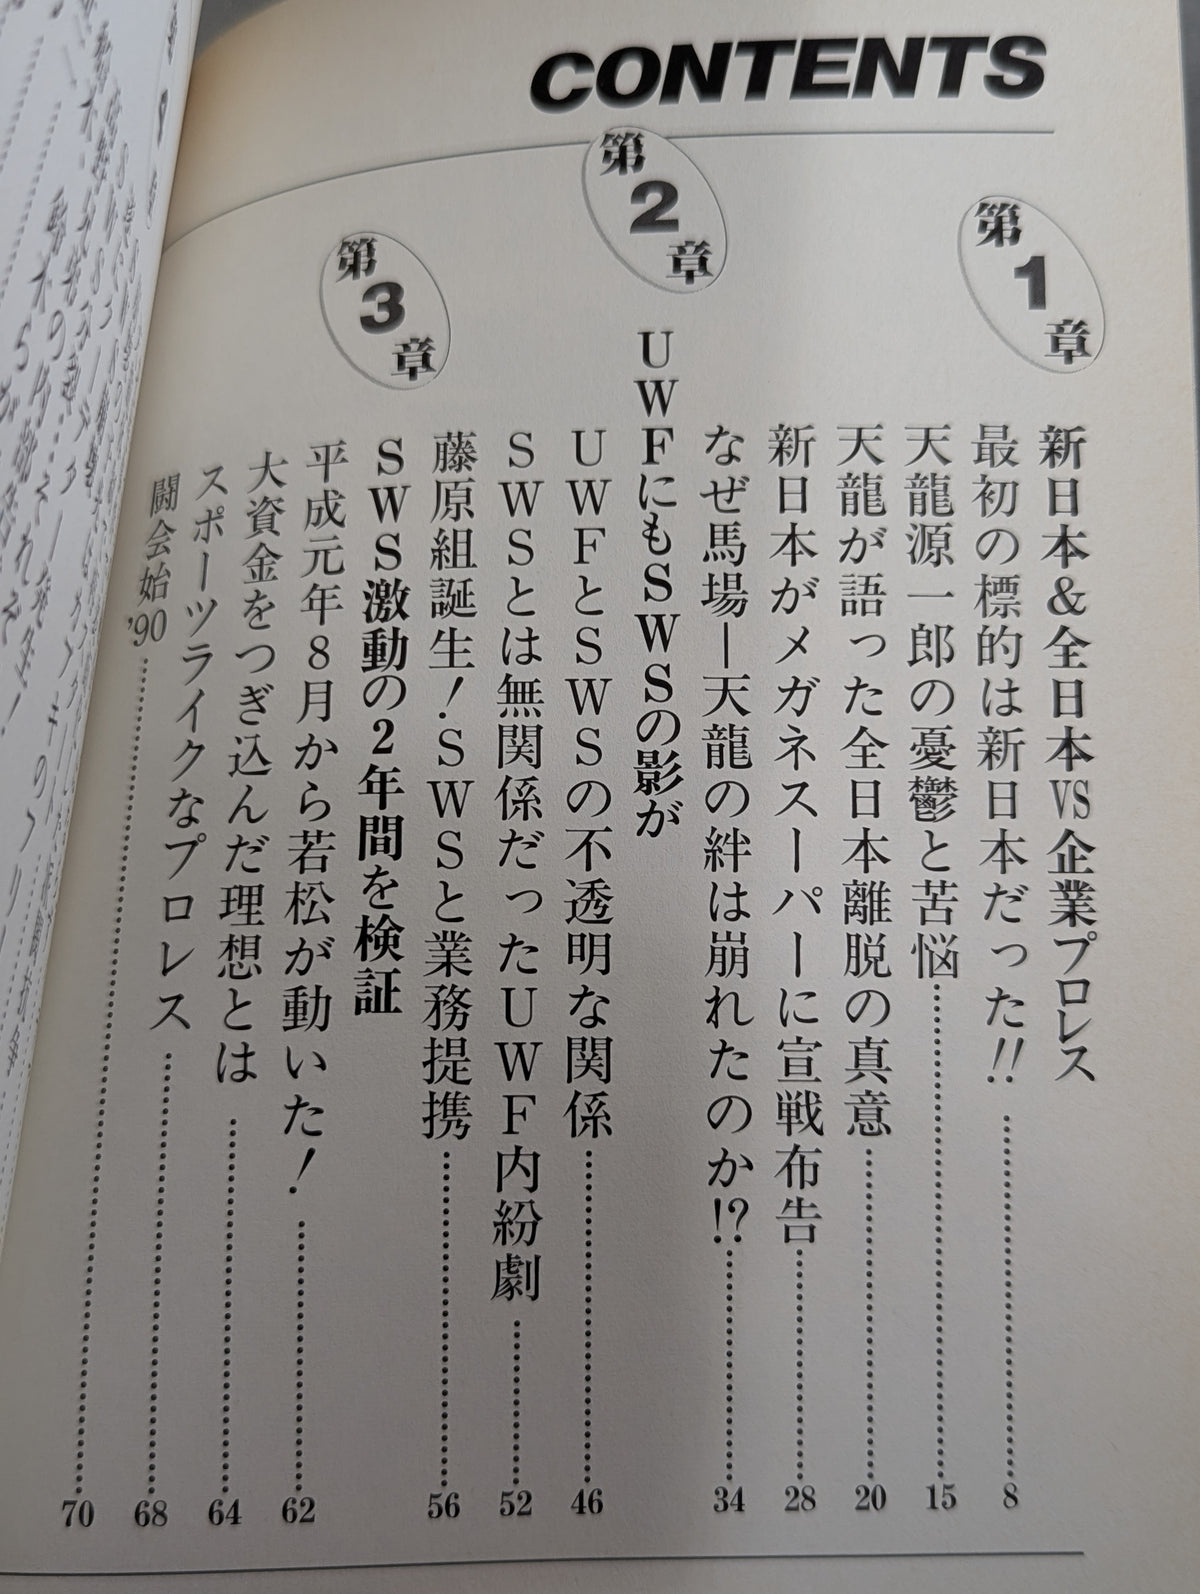 CONTENTS
第1章
新日本&全日本VS企業プロレス
最初の標的は新日本だった!!……8
天龍源一郎の憂鬱と苦悩……15
天龍が語った全日本離脱の真意……20
新日本がメガネスーパーに宣戦布告……28
なぜ馬場―天龍の絆は崩れたのか!?……34
第2章
UWFにもSWSの影が
UWFとSWSの不透明な関係……46
SWSとは無関係だったUWF内紛劇……52
藤原組誕生!SWSと業務提携……56
第3章
SWS激動の2年間を検証
平成元年8月から若松が動いた!……62
大資金をつぎ込んだ理想とは……64
スポーツライクなプロレス……68
闘会始'90……70